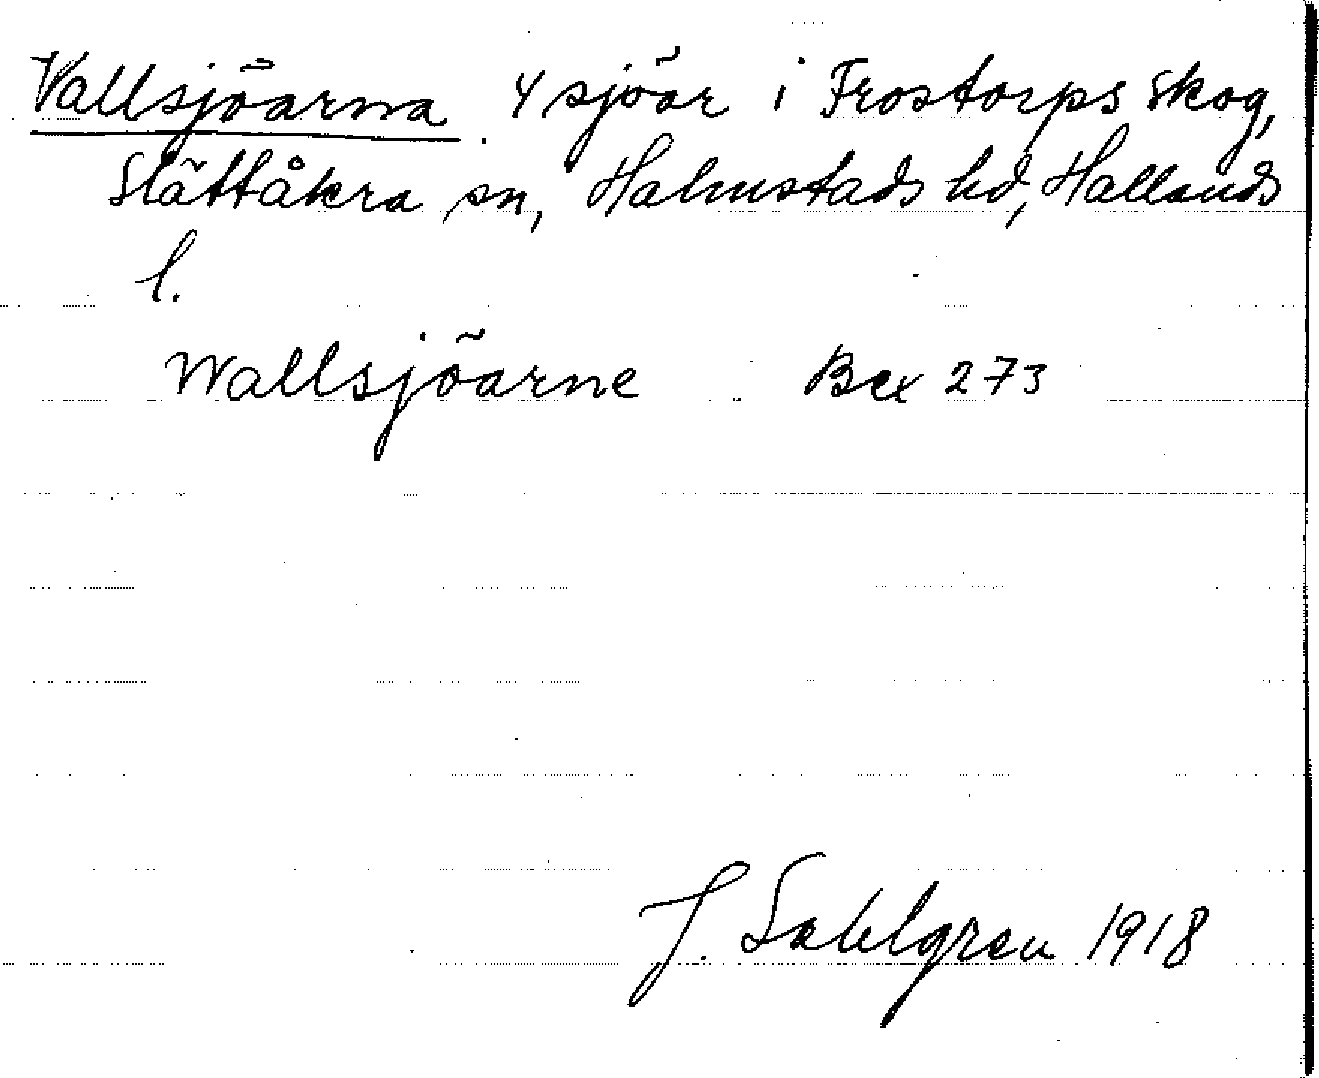 Vallsjöarna. 4 sjöar i Frostorps skog,
Slättåkra sn, Halmstads hd, Hallands
l.
Wallsjöarne Bex 273
J. Sahlgren 1918